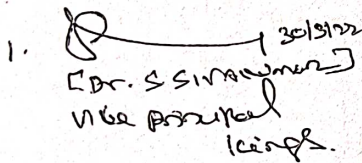 1. 30/3/22
[Dr. S SIVAKUMAR]
Vice Principal
Kings.